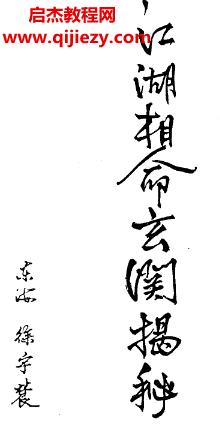 启杰教程网
www.qijiezy.com
江湖相命玄関揭秘
东海 徐宇辳